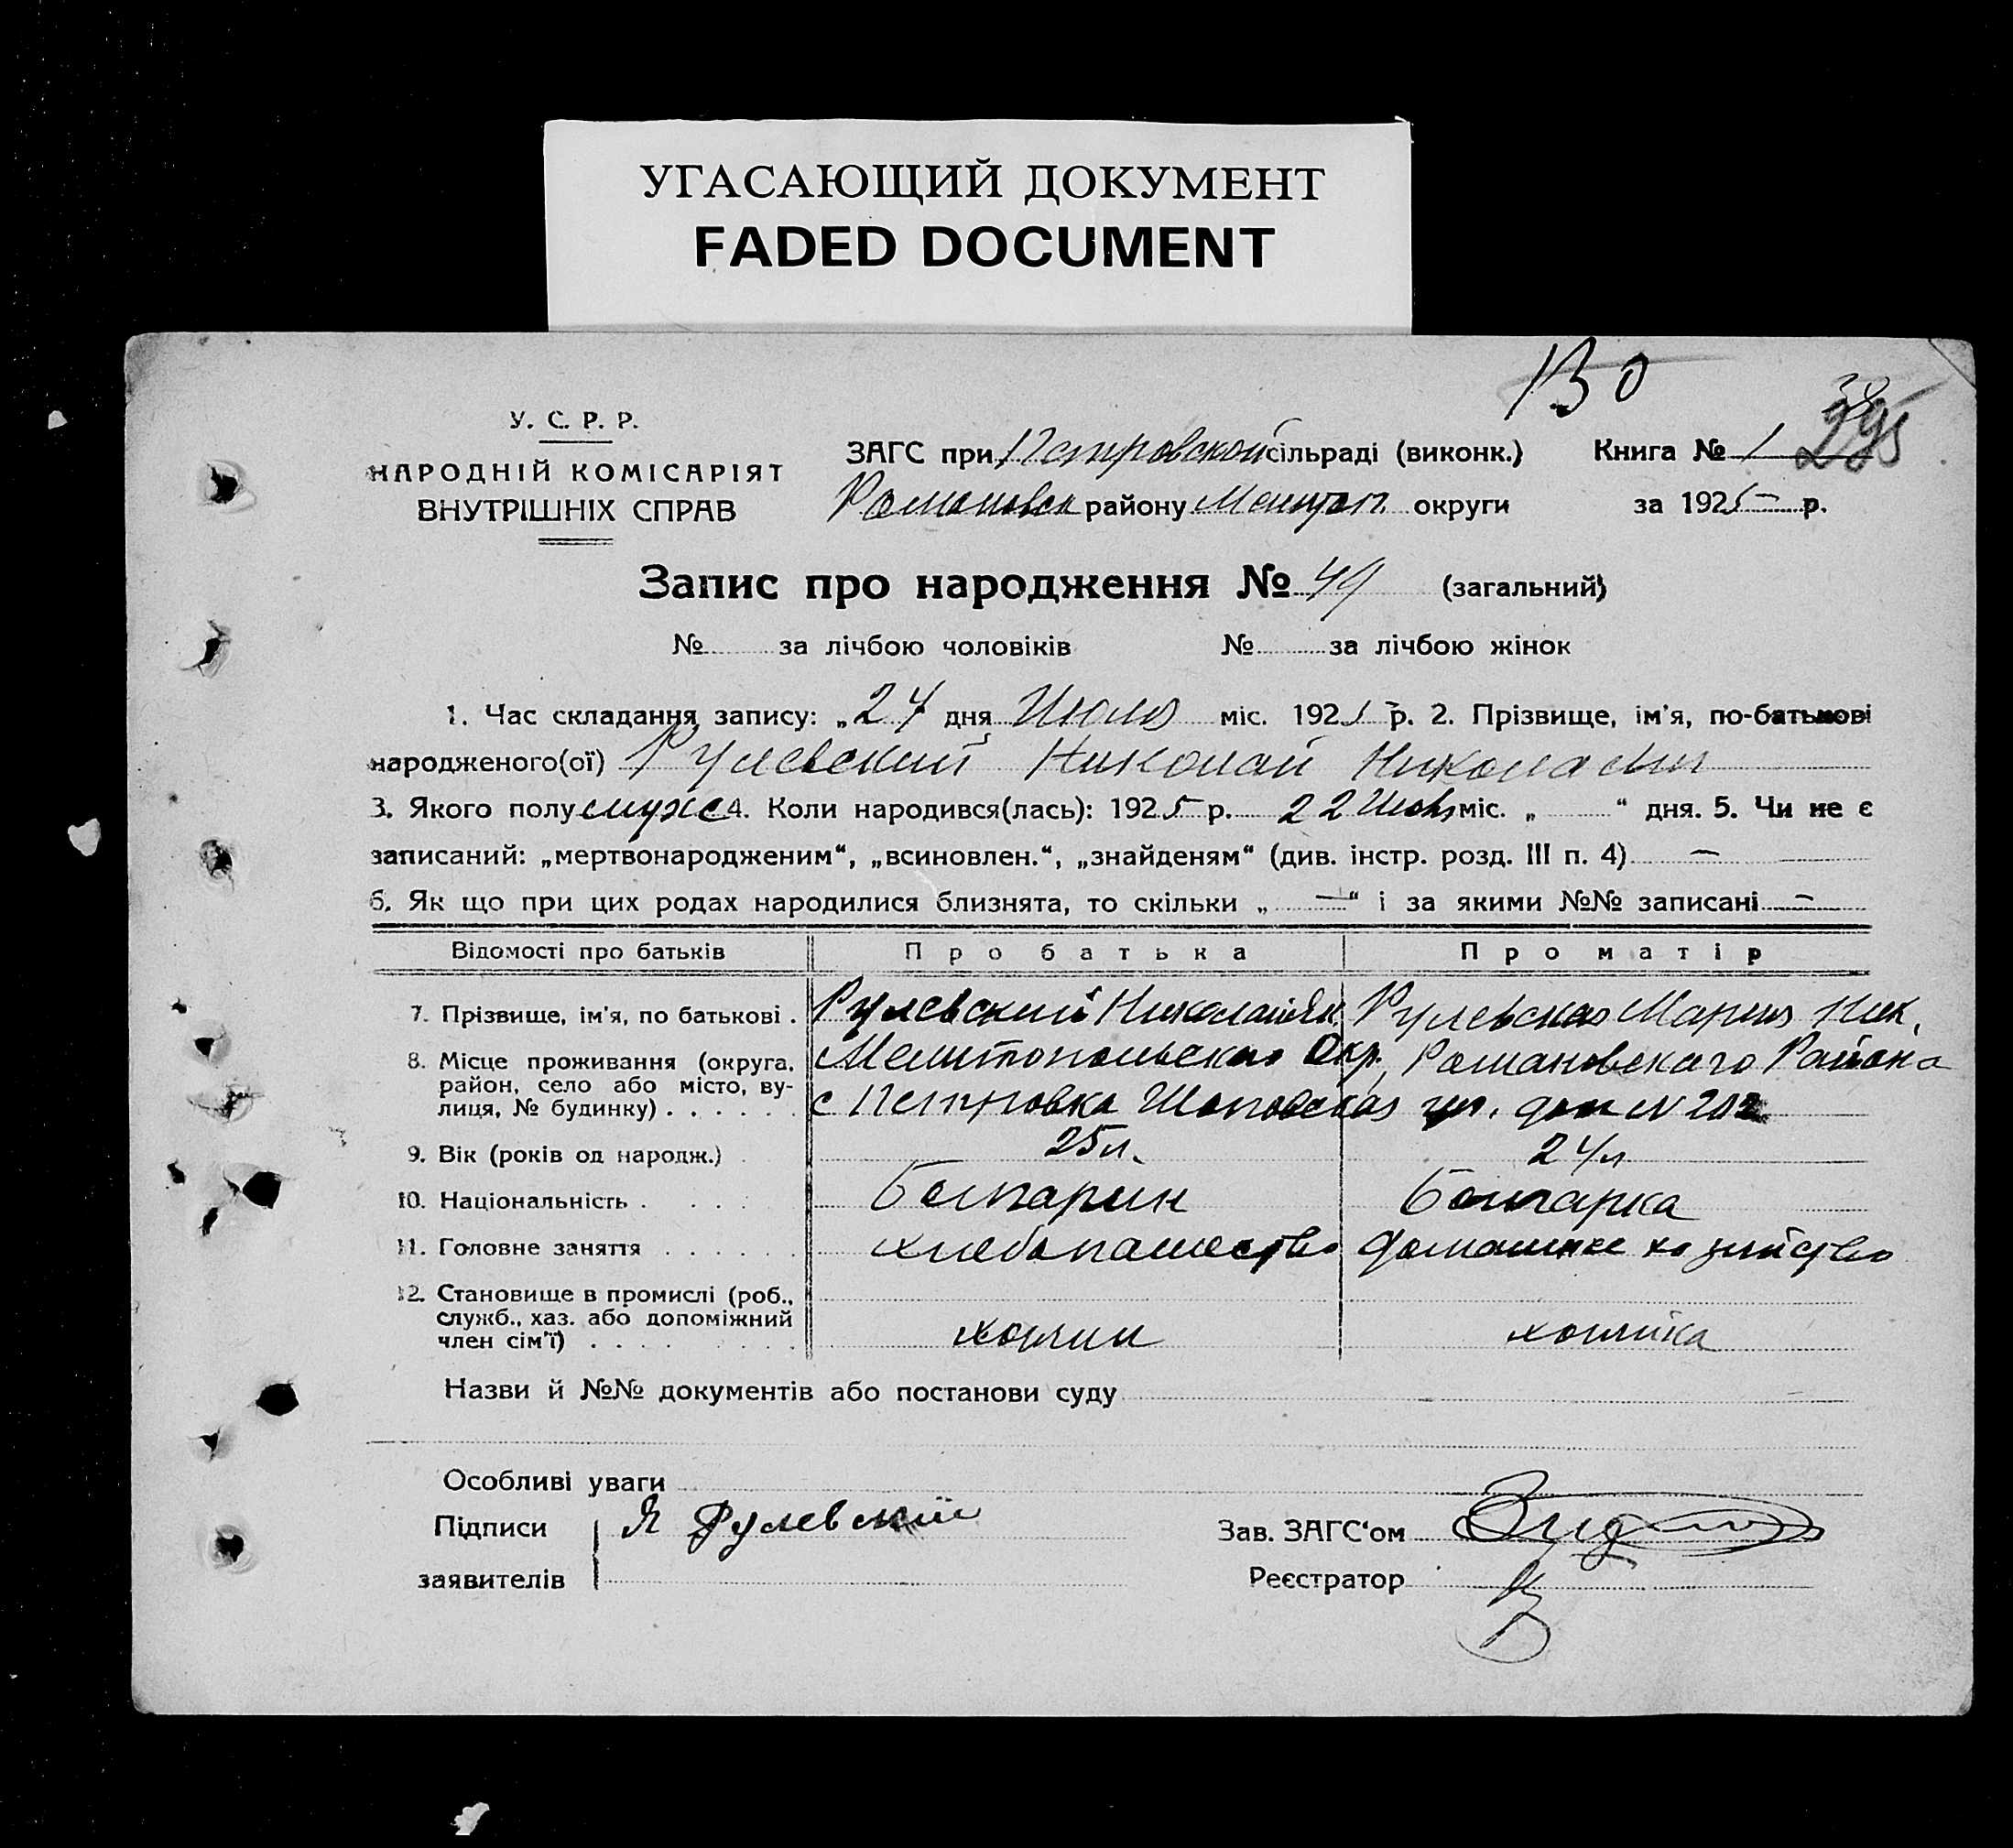 УГАСАЮЩИЙ ДОКУМЕНТ
FADED DOCUMENT
130
У. С. Р. Р.
НАРОДНІЙ КОМІСАРІЯТ
ВНУТРІШНІХ СПРАВ
ЗАГС при Петровской сільраді (виконк.) Книга № 1 295
Романовск району Мелитоп. округи за 1925 р.
Запис про народження № 49 (загальний)
№ за лічбою чоловіків № за лічбою жінок
1. Час складання запису: „24 дня Июля міс. 1925 р. 2. Прізвище, ім'я, по-батькові
народженого(ої) Рулевский Николай Николаевич
3. Якого полу муж 4. Коли народився(лась): 1925 р. 22 міс. „ “ дня. 5. Чи не є
записаний: „мертвонародженим“, „всиновлен.“, „знайденям“ (див. інстр. розд. III п. 4) —
6. Як що при цих родах народилися близнята, то скільки „ — “ і за якими №№ записані —
Відомості про батьків Про батька Про матір
7. Прізвище, ім'я, по батькові . Рулевский Николай Як. Рулевская Мария Ник.
8. Місце проживання (округа, район, село або місто, вулиця, № будинку) . . . . . . Мелитопольская Окр., Романовскаго Района
с Петровка ул. дом № 202
9. Вік (років од народж.) 25 л. 24 л
10. Національність . . . . Болгарин Болгарка
11. Головне заняття . . . . . . хлебопашество домашнее хозяйство
12. Становище в промислі (роб., служб., хаз. або допоміжний член сім'ї) . . . . . . . . хозяин хозяйка
Назви й №№ документів або постанови суду
Особливі уваги
Підписи Я Рулевский Зав. ЗАГС‘ом
заявителів Реєстратор